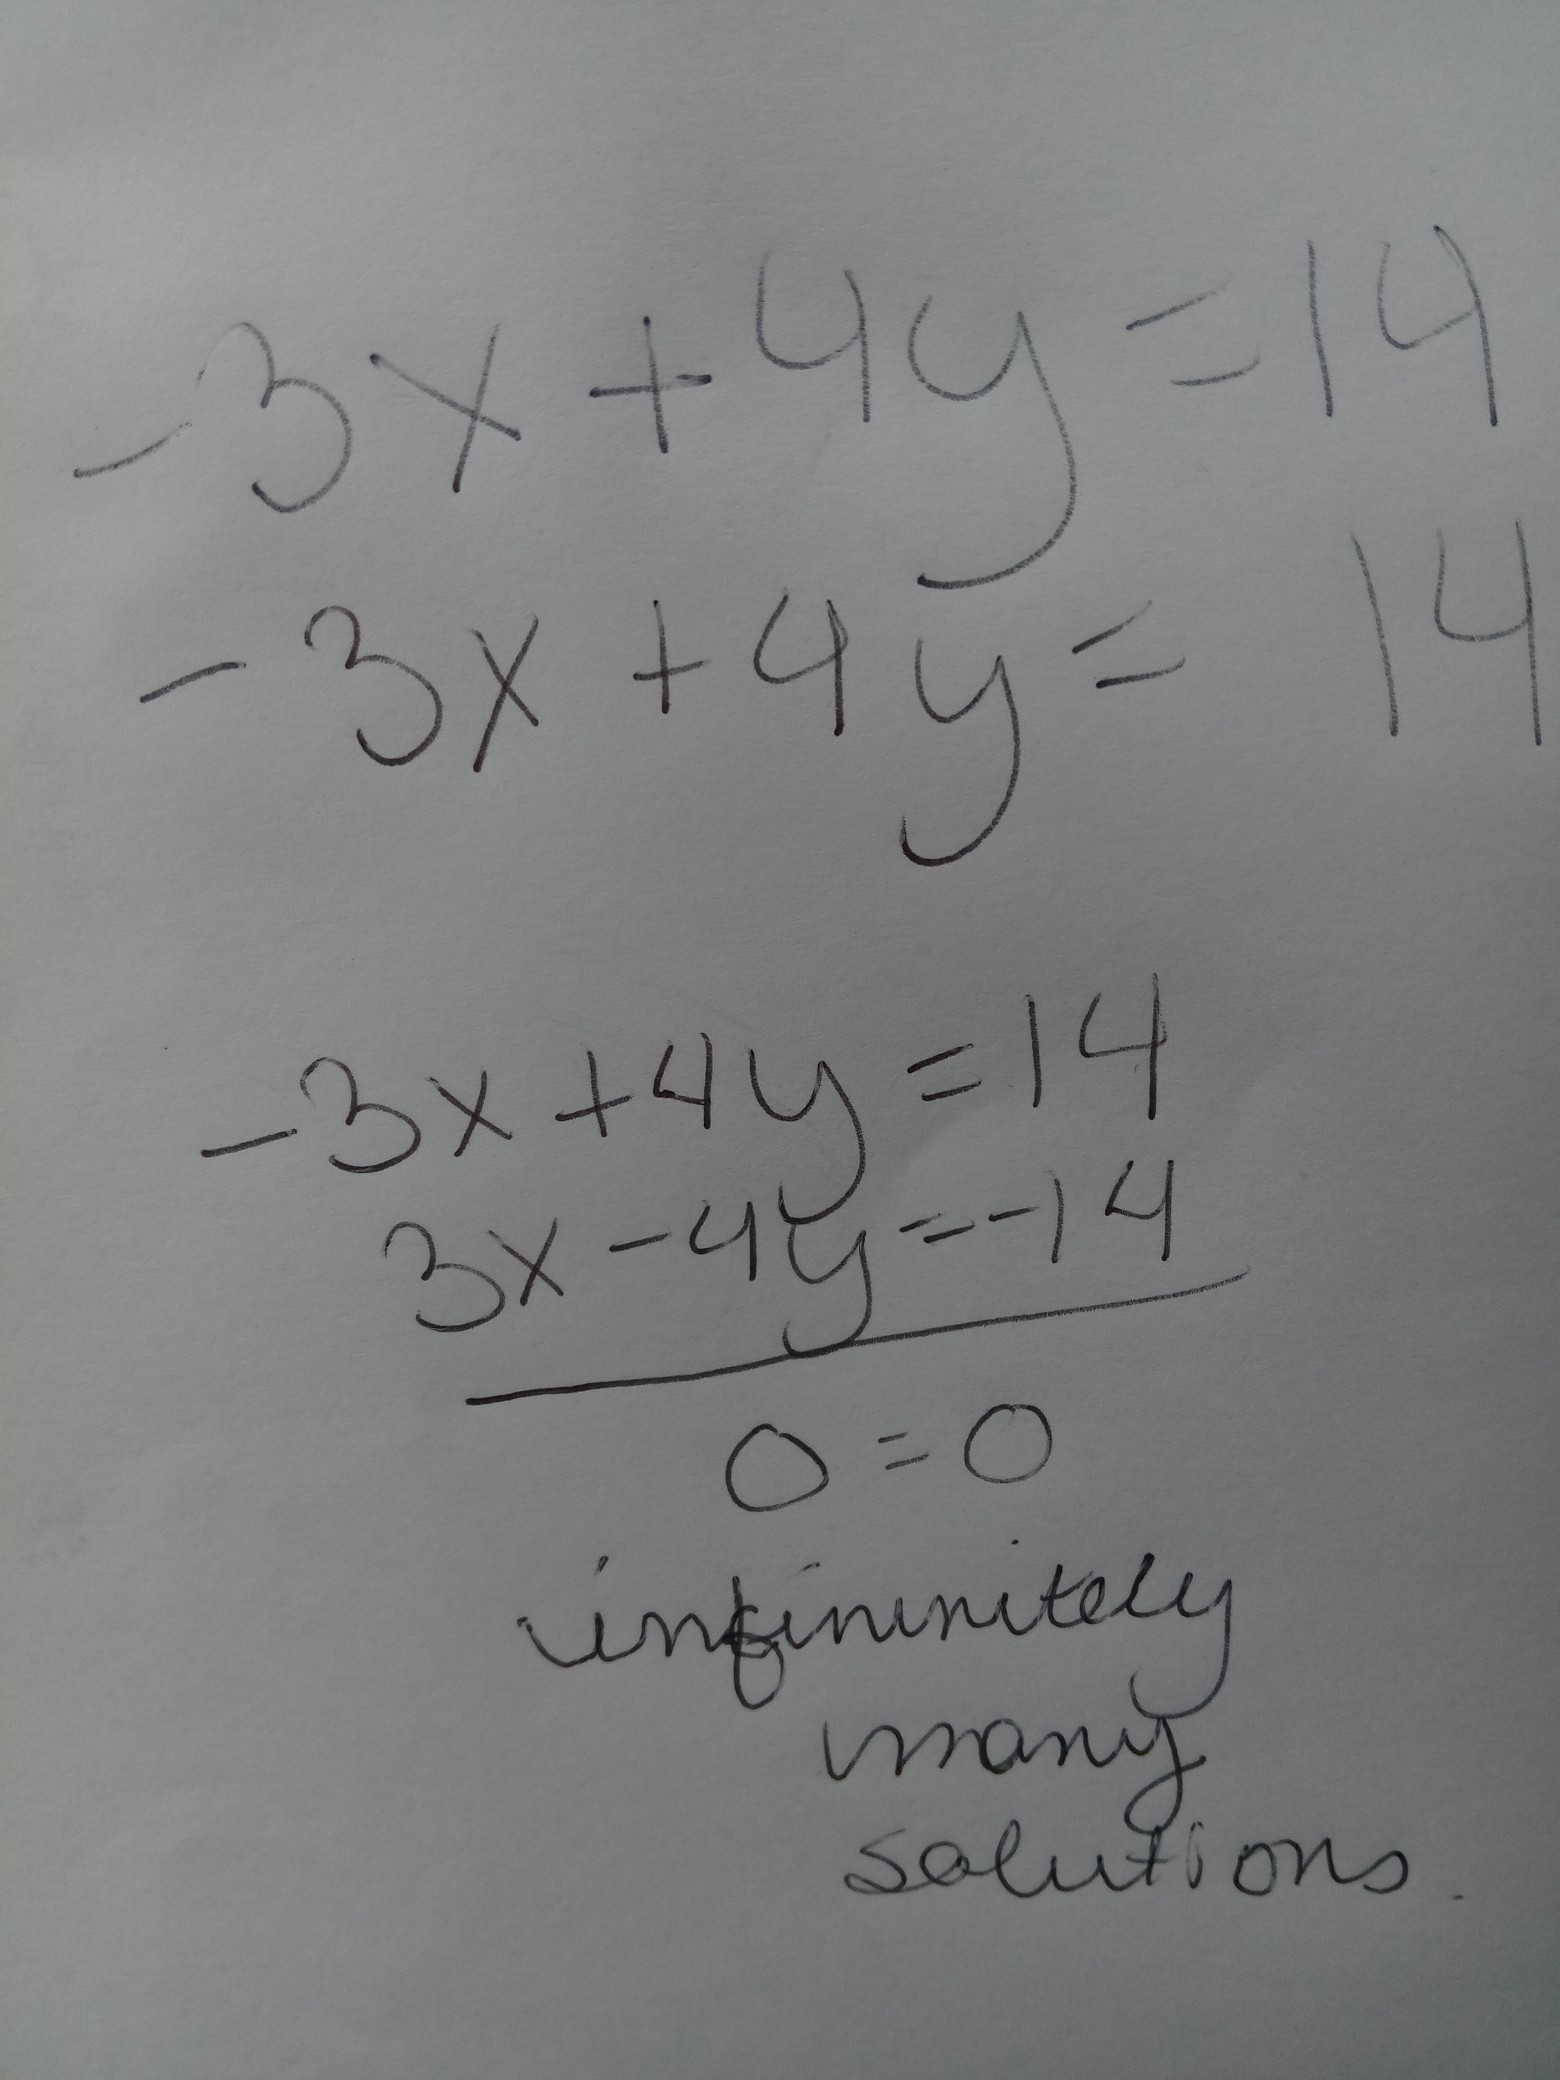 -3x + 4y = 14
-3x + 4y = 14
-3x + 4y = 14
3x - 4y = -14
0 = 0
infininitely
many
solutions.